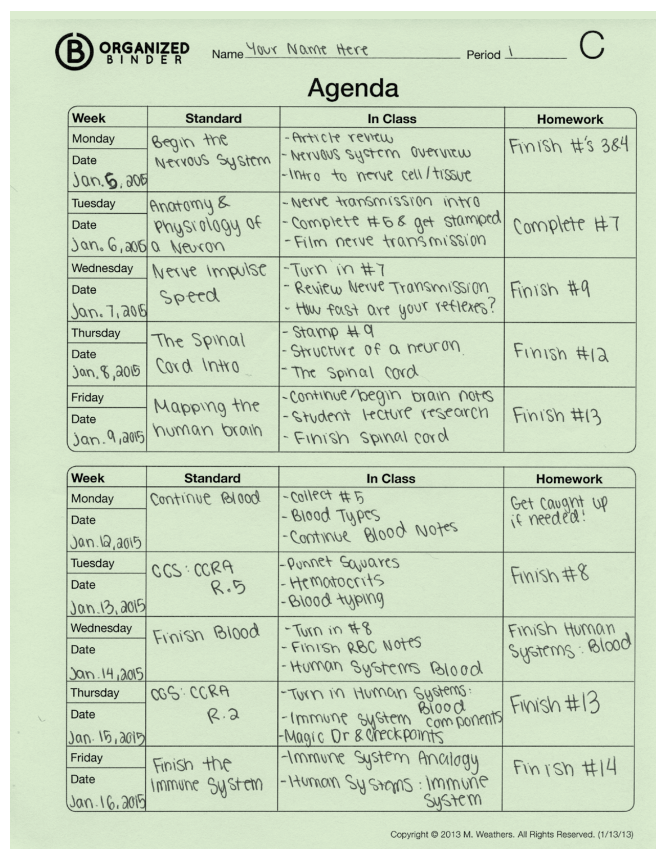 B ORGANIZED
BINDER
Name Your Name Here Period 1 C
Agenda
Week Standard In Class Homework
Monday
Date
Jan. 5, 2015
Begin the
Nervous System
- Article review
- Nervous System Overview
- Intro to nerve cell/tissue
Finish #'s 3&4
Tuesday
Date
Jan. 6, 2015
Anatomy &
Physiology of
a Neuron
- Nerve transmission intro
- Complete #5 & get stamped
- Film nerve transmission
Complete #7
Wednesday
Date
Jan. 7, 2015
Nerve Impulse
Speed
- Turn in #7
- Review Nerve Transmission
- How fast are your reflexes?
Finish #9
Thursday
Date
Jan. 8, 2015
The Spinal
Cord Intro
- Stamp #9
- Structure of a neuron.
- The Spinal Cord
Finish #12
Friday
Date
Jan. 9, 2015
Mapping the
human brain
- Continue/begin brain notes
- Student lecture research
- Finish spinal cord
Finish #13
Week Standard In Class Homework
Monday
Date
Jan. 12, 2015
Continue Blood
- Collect #5
- Blood Types
- Continue Blood Notes
Get caught up
if needed!
Tuesday
Date
Jan. 13, 2015
CCS: CCRA
R.5
- Punnet Squares
- Hematocrits
- Blood typing
Finish #8
Wednesday
Date
Jan. 14, 2015
Finish Blood
- Turn in #8
- Finish RBC Notes
- Human Systems Blood
Finish Human
Systems: Blood
Thursday
Date
Jan. 15, 2015
CCS: CCRA
R.2
- Turn in Human Systems:
Blood
- Immune system components
- Magic Dr & Checkpoints
Finish #13
Friday
Date
Jan. 16, 2015
Finish the
Immune System
- Immune System Analogy
- Human Systems: Immune
System
Finish #14
Copyright © 2013 M. Weathers. All Rights Reserved. (1/13/13)